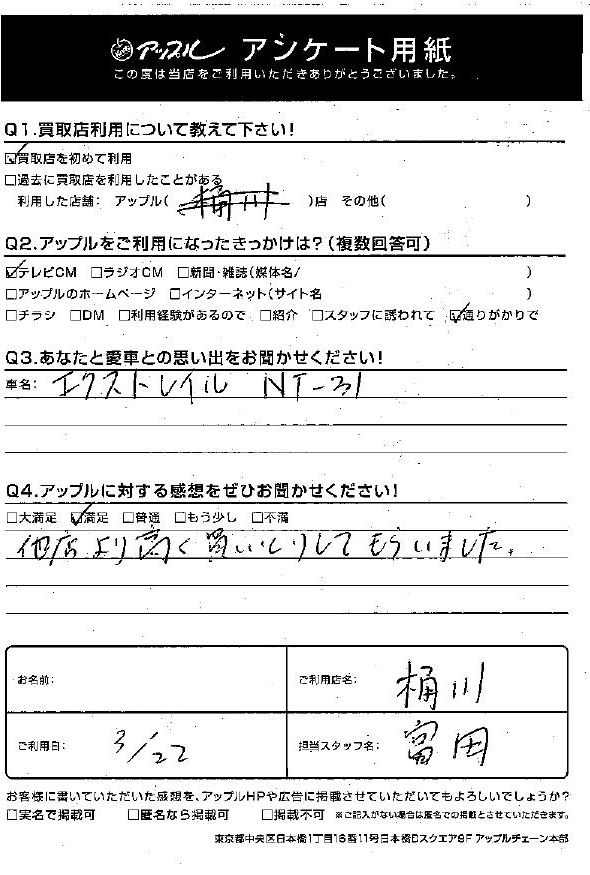 アップル アンケート用紙
この度は当店をご利用いただきありがとうございました。
Q1.買取店利用について教えて下さい！
☑買取店を初めて利用
□過去に買取店を利用したことがある
利用した店舗： アップル( 桶川 )店 その他( )
Q2.アップルをご利用になったきっかけは？(複数回答可)
☑テレビCM □ラジオCM □新聞・雑誌(媒体名/ )
□アップルのホームページ □インターネット(サイト名 )
□チラシ □DM □利用経験があるので □紹介 □スタッフに誘われて ☑通りがかりで
Q3.あなたと愛車との思い出をお聞かせください！
車名： エクストレイル NT-31
Q4.アップルに対する感想をぜひお聞かせください！
□大満足 ☑満足 □普通 □もう少し □不満
他店より高く買いとりしてもらいました。
お名前：
ご利用店名： 桶川
ご利用日： 3/22
担当スタッフ名： 富田
お客様に書いていただいた感想を、アップルHPや広告に掲載させていただいてもよろしいでしょうか？
□実名で掲載可 □匿名なら掲載可 □掲載不可 ※ご記入がない場合は匿名での掲載とさせていただきます。
東京都中央区日本橋1丁目16番11号日本橋Dスクエア9F アップルチェーン本部